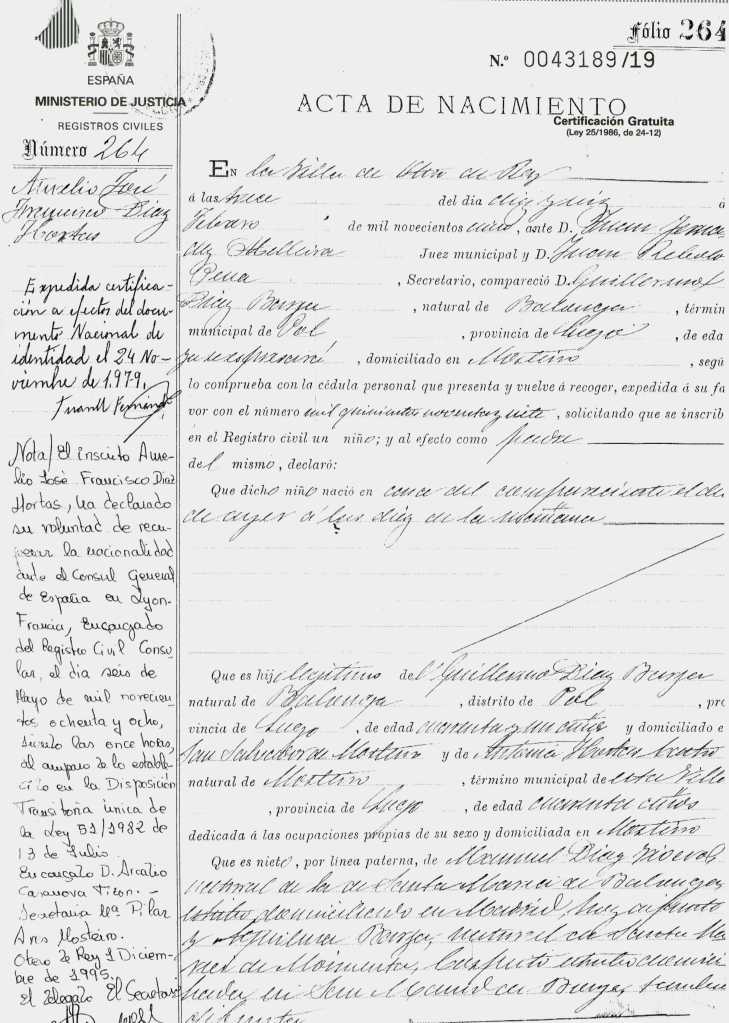 Fólio 264
N.º 0043189/19
ESPAÑA
MINISTERIO DE JUSTICIA
REGISTROS CIVILES
ACTA DE NACIMIENTO
Certificación Gratuita
(Ley 25/1986, de 24-12)
Número 264
Aurelio José
Francisco Diaz
Hortas
Expedida certifica-
ción a efectos del docu-
mento Nacional de
identidad el 24 No-
viembre de 1.979.
Nota/ El inscrito Aure-
lio José Francisco Diaz
Hortas, ha declarado
su voluntad de recu-
perar la nacionalidad
ante el Consul General
de España en Lyon-
Francia, Encargado
del Registro Civil Consu-
lar, el día seis de
Mayo de mil novecien-
tos ochenta y ocho,
siendo las once horas,
al amparo de lo estable-
cido en la Disposición
Transitoria única de
la Ley 51/1982 de
13 de Julio.
Encargado D. Arcadio
Casanova
Secretaria Mª Pilar
Ares Mosteiro.
Otero de Rey 1 Diciem-
bre de 1995.
El Delegado El Secretari
EN la Villa de Otero de Rey
á las trece del día diez y seis
Febrero de mil novecientos cinco, ante D. Juan
Juez municipal y D. Juan
Pena, Secretario, compareció D. Guillermo
Diaz Barja, natural de Balonga, términ
municipal de Pol, provincia de Lugo, de eda
, domiciliado en Mosteiro, segú
lo comprueba con la cédula personal que presenta y vuelve á recoger, expedida á su fa
vor con el número mil quinientos noventa y siete, solicitando que se inscrib
en el Registro civil un niño; y al efecto como padre
del mismo, declaró:
Que dicho niño nació en casa del compareciente el dia
de ayer á las diez de la mañana
Que es hijo legitimo del Guillermo Diaz Barja
natural de Balonga, distrito de Pol, pro
vincia de Lugo, de edad cuarenta y un años y domiciliado e
San Salvador de Mosteiro y de Antonia Hortas Castro
natural de Mosteiro, término municipal de esta Villa
, provincia de Lugo, de edad cuarenta años
dedicada á las ocupaciones propias de su sexo y domiciliada en Mosteiro
Que es nieto, por línea paterna, de Manuel Diaz
natural de la de Santa Maria de Balonga
domiciliado en Madrid, hoy difunto
y Barja, natural de Santa Ma
ria de Moimenta,
en San de Barja, tambien
difunta